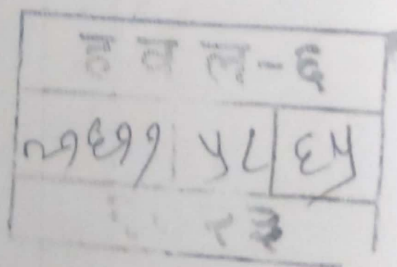 हवल-६
२१६११ ५८ ६५
२३